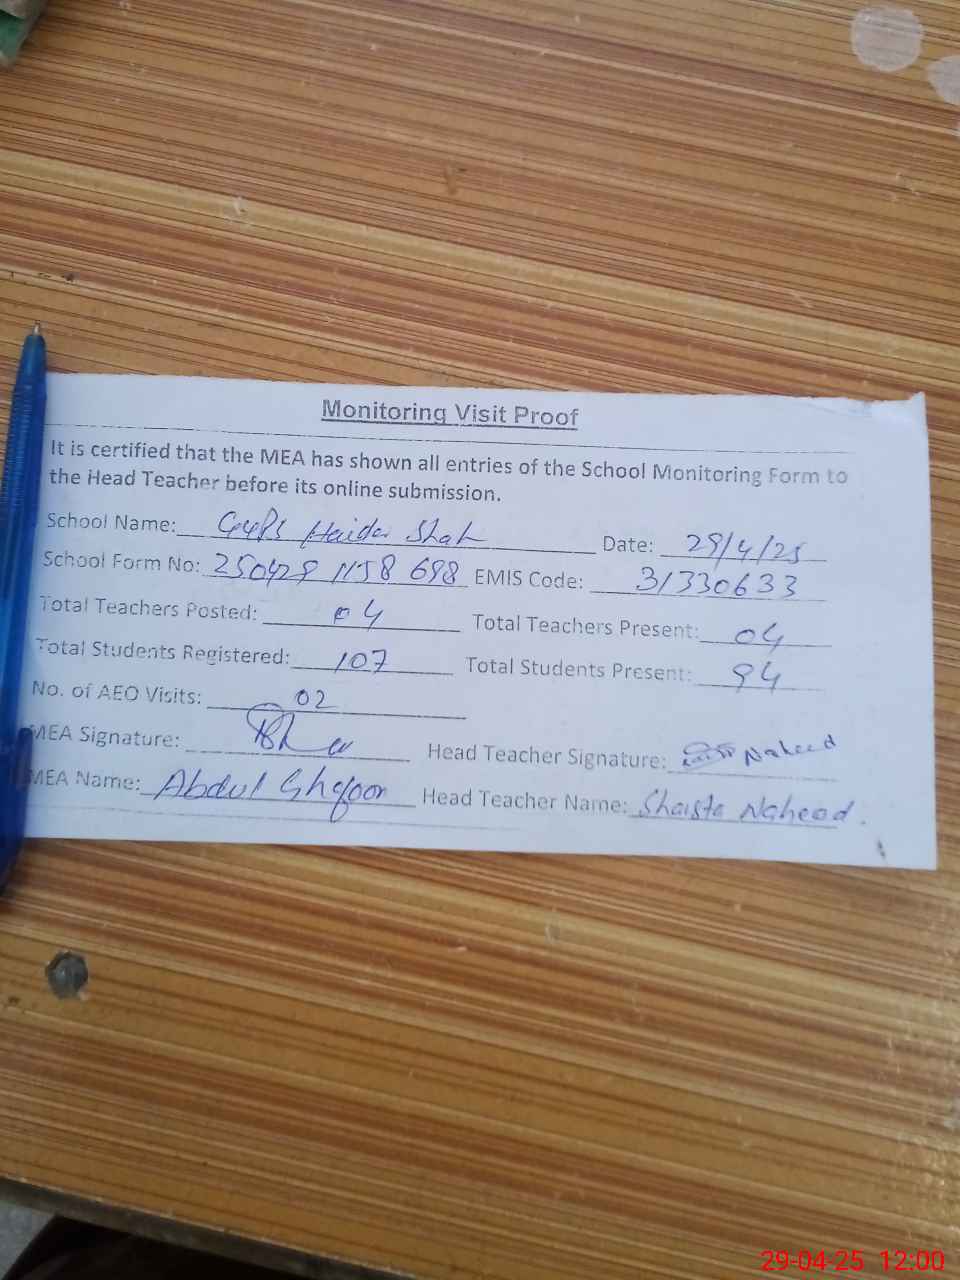 Monitoring Visit Proof
It is certified that the MEA has shown all entries of the School Monitoring Form to
the Head Teacher before its online submission.
School Name: GGPS Haider Shah Date: 29/4/25
School Form No: 250429 1158 698 EMIS Code: 31330633
Total Teachers Posted: 04 Total Teachers Present: 04
Total Students Registered: 107 Total Students Present: 94
No. of AEO Visits: 02
MEA Signature: Head Teacher Signature: Naheed
MEA Name: Abdul Ghafoor Head Teacher Name: Shaista Naheed.
29-04-25 12:00